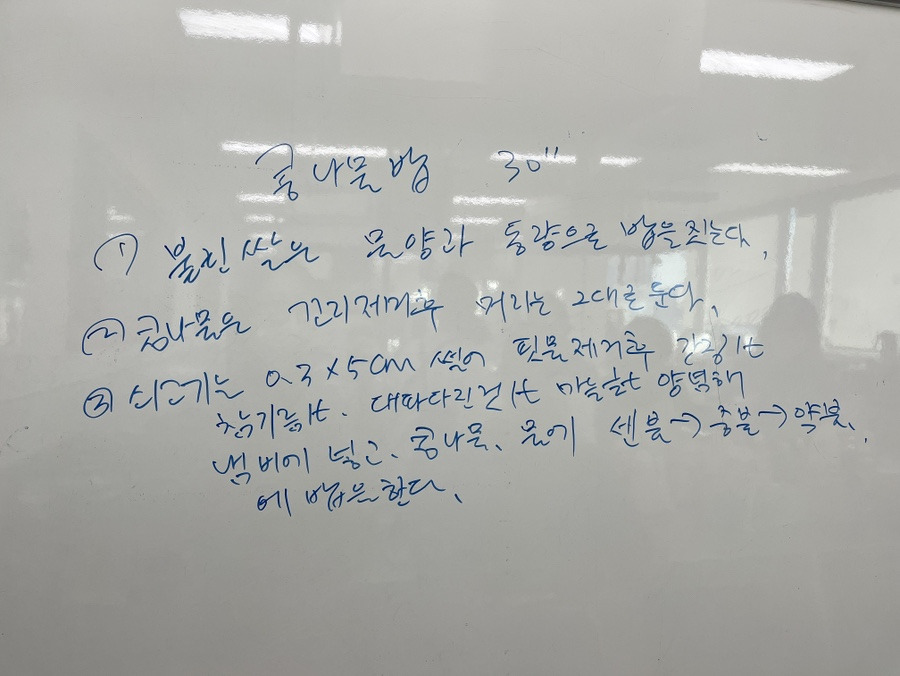 콩나물밥 30''
① 불린쌀은 물양과 동량으로 밥을 짓는다.
② 콩나물은 꼬리제거후 머리는 그대로둔다.
③ 쇠고기는 0.3×5cm 썰어 핏물제거후 간장1t
참기름1t. 대파다진건1t 마늘½t 양념해
냄비에 넣고, 콩나물, 물에 센불→중불→약불,
에 밥은한다.